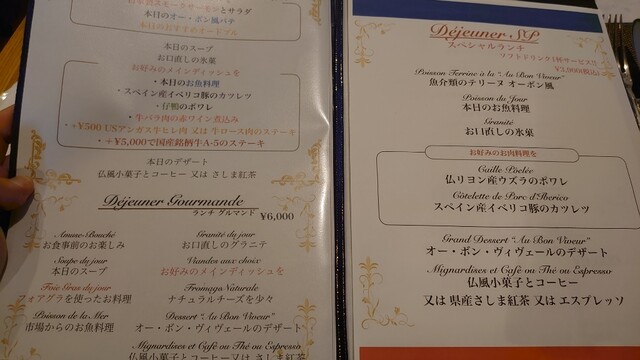 とサラダ
本日のオー・ボン風パテ
本日のスープ
お口直しの氷菓
お好みのメインディッシュを
・本日のお魚料理
・スペイン産イベリコ豚のカツレツ
・仔鴨のポワレ
・牛バラ肉の赤ワイン煮込み
・+¥500 USアンガス牛ヒレ肉 又は 牛ロース肉のステーキ
・+¥5,000で国産銘柄牛A-5のステーキ
本日のデザート
仏風小菓子とコーヒー 又は さしま紅茶
Déjeuner Gourmande
ランチ グルマンド ¥6,000
Amuse-Bouché
お食事前のお楽しみ
Soupe du jour
本日のスープ
Foie Gras du jour
フォアグラを使ったお料理
Poisson de la Mer
市場からのお魚料理
Granité du jour
お口直しのグラニテ
Viandes aux choix
お好みのメインディッシュを
Fromage Naturale
ナチュラルチーズを少々
Dessert "Au Bon Viveur"
オー・ボン・ヴィヴェールのデザート
Mignardises et Café ou Thé ou Espresso
仏風小菓子とコーヒー又は さしま紅茶
Déjeuner SP
スペシャルランチ
ソフトドリンク1杯サービス
¥3,900(税込)
Poisson Terrine à la "Au Bon Viveur"
魚介類のテリーヌ オーボン風
Poisson du Jour
本日のお魚料理
Granité
お口直しの氷菓
お好みのお肉料理を
Caille Poêlée
仏リヨン産ウズラのポワレ
Côtelette de Porc d'Iberico
スペイン産イベリコ豚のカツレツ
Grand Dessert "Au Bon Viveur"
オー・ボン・ヴィヴェールのデザート
Mignardises et Café ou Thé ou Espresso
仏風小菓子とコーヒー
又は 県産さしま紅茶 又は エスプレッソ